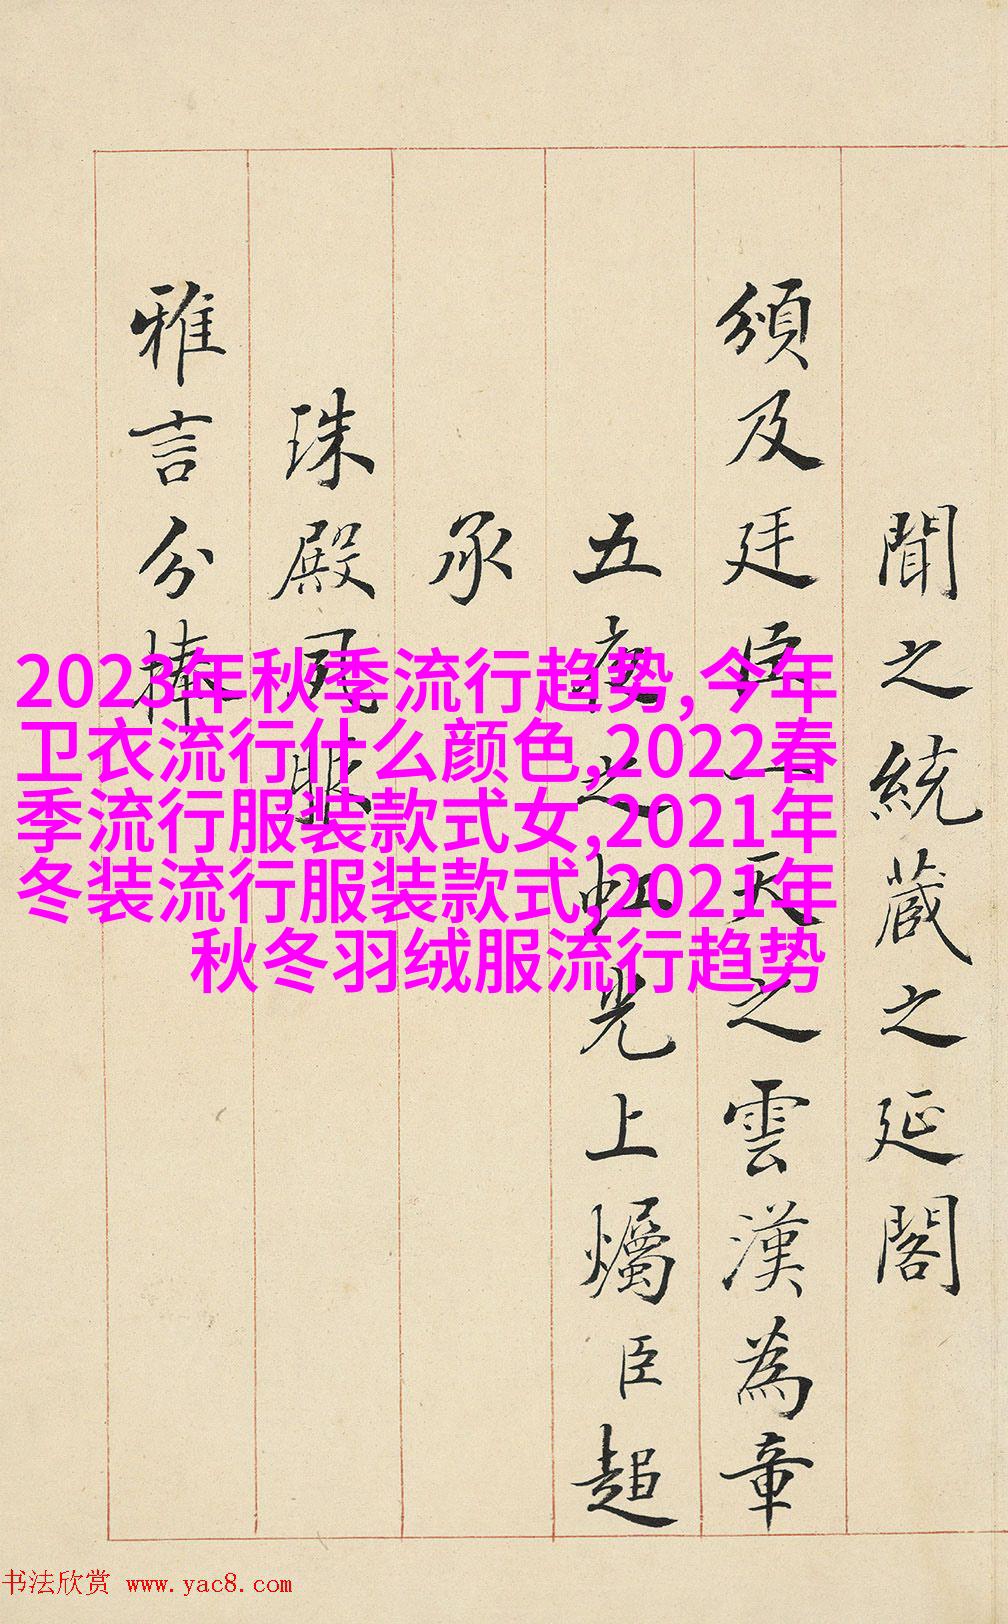 聞之統蔵之延閣
頒及廷臣一天之雲漢為章
五夜之虹光上爥臣超
承
珠殿
雅言分捧
2023年秋季流行趋势,今年
卫衣流行什么颜色,2022春
季流行服装款式女,2021年
冬装流行服装款式,2021年
秋冬羽绒服流行趋势
书法欣赏 www.yac8.com